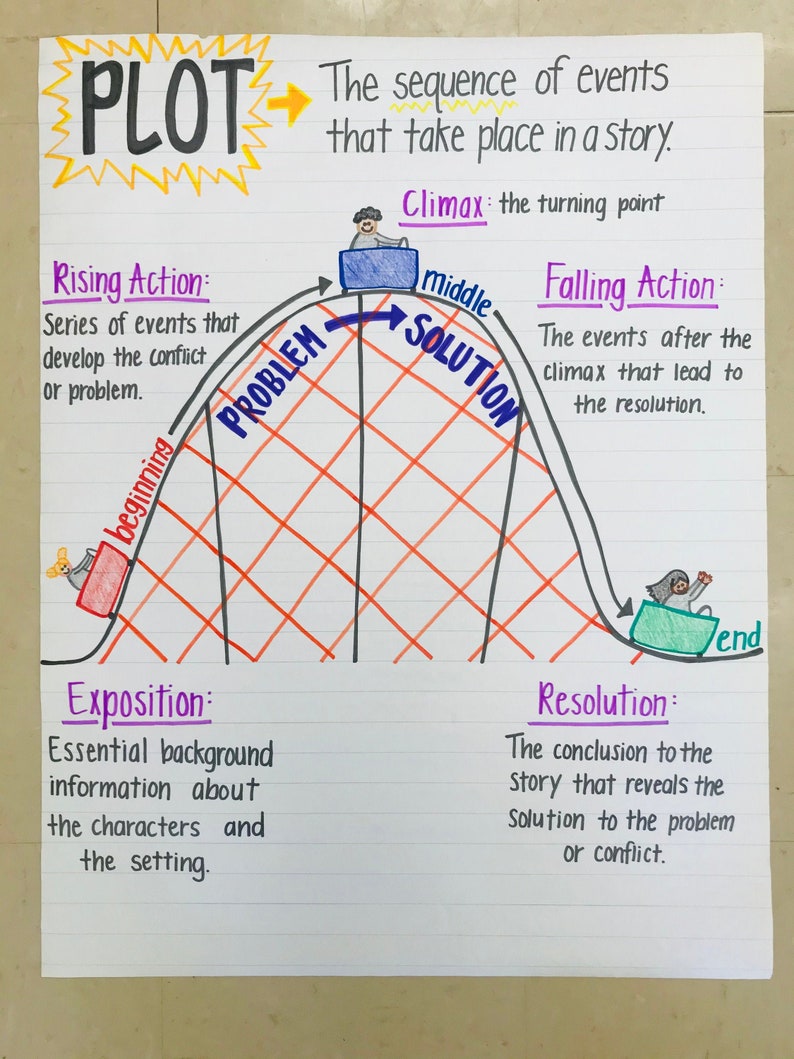 PLOT
The sequence of events
that take place in a story.
Climax: the turning point
Rising Action:
Series of events that
develop the conflict
or problem.
middle
Falling Action:
The events after the
climax that lead to
the resolution.
PROBLEM
SOLUTION
beginning
end
Exposition:
Essential background
information about
the characters and
the setting.
Resolution:
The conclusion to the
story that reveals the
solution to the problem
or conflict.